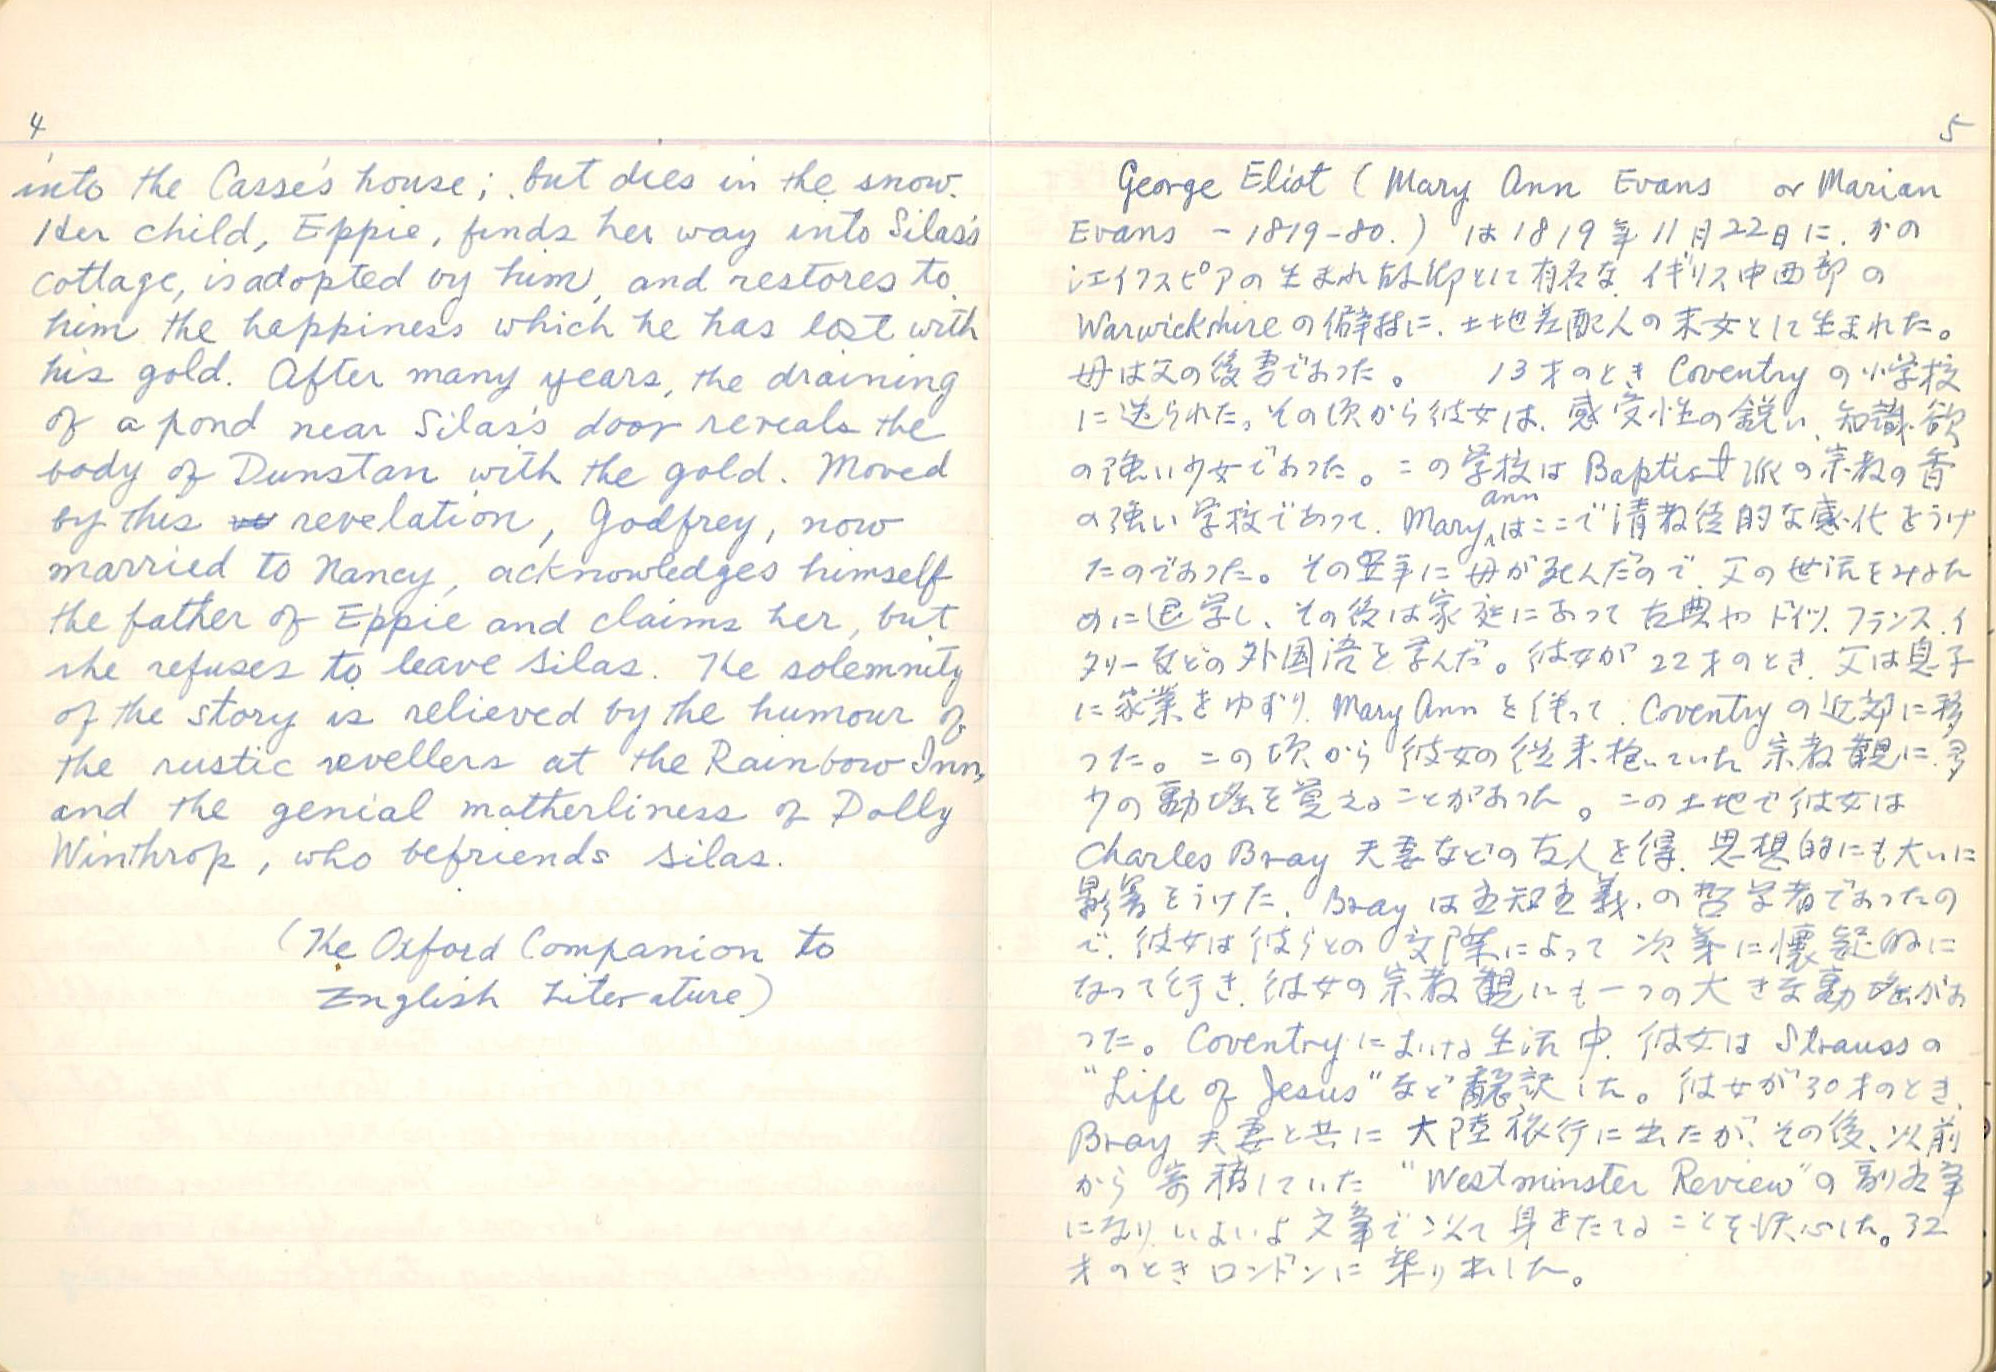 4
into the Casse's house; but dies in the snow.
Her child, Eppie, finds her way into Silas's
cottage, is adopted by him, and restores to
him the happiness which he has lost with
his gold. After many years, the draining
of a pond near Silas's door reveals the
body of Dunstan with the gold. Moved
by this revelation, Godfrey, now
married to Nancy, acknowledges himself
the father of Eppie and claims her, but
she refuses to leave Silas. The solemnity
of the story is relieved by the humour of
the rustic revellers at the Rainbow Inn,
and the genial motherliness of Dolly
Winthrop, who befriends Silas.
(The Oxford Companion to
English Literature)
5
George Eliot (Mary Ann Evans or Marian
Evans - 1819-80.) は1819年11月22日に、かの
シェイクスピアの生まれ故郷として有名な、イギリス中西部の
Warwickshireの僻村に、土地差配人の末女として生まれた。
母は父の後妻であった。 13才のとき Coventryの小学校
に送られた。その頃から彼女は、感受性の鋭い、知識欲
の強い少女であった。この学校は Baptist派の宗教の香
の強い学校であって、Mary Annはここで清教徒的な感化をうけ
たのであった。その翌年に母が死んだので、父の世話をみるた
めに退学し、その後は家庭にあって古典やドイツ、フランス、イ
タリー などの外国語を学んだ。彼女が22才のとき、父は息子
に家業をゆずり、Mary Annを伴って、Coventryの近郊に移
った。この頃から彼女の従来抱いていた宗教観に、多
少の動揺を覚えることがあった。この土地で彼女は
Charles Bray 夫妻などの友人を得、思想的にも大いに
影響をうけた。Brayは主知主義の哲学者であったの
で、彼女は彼らとの交際によって次第に懐疑的に
なって行き、彼女の宗教観にも一つの大きな動揺があ
った。Coventryにおける生活中、彼女は Straussの
"Life of Jesus"など飜訳した。彼女が30才のとき、
Bray夫妻と共に大陸旅行に出たが、その後、以前
から寄稿していた "Westminster Review"の副主筆
になり、いよいよ文筆で以て身をたてることを決心した。32
才のときロンドンに乗り出した。